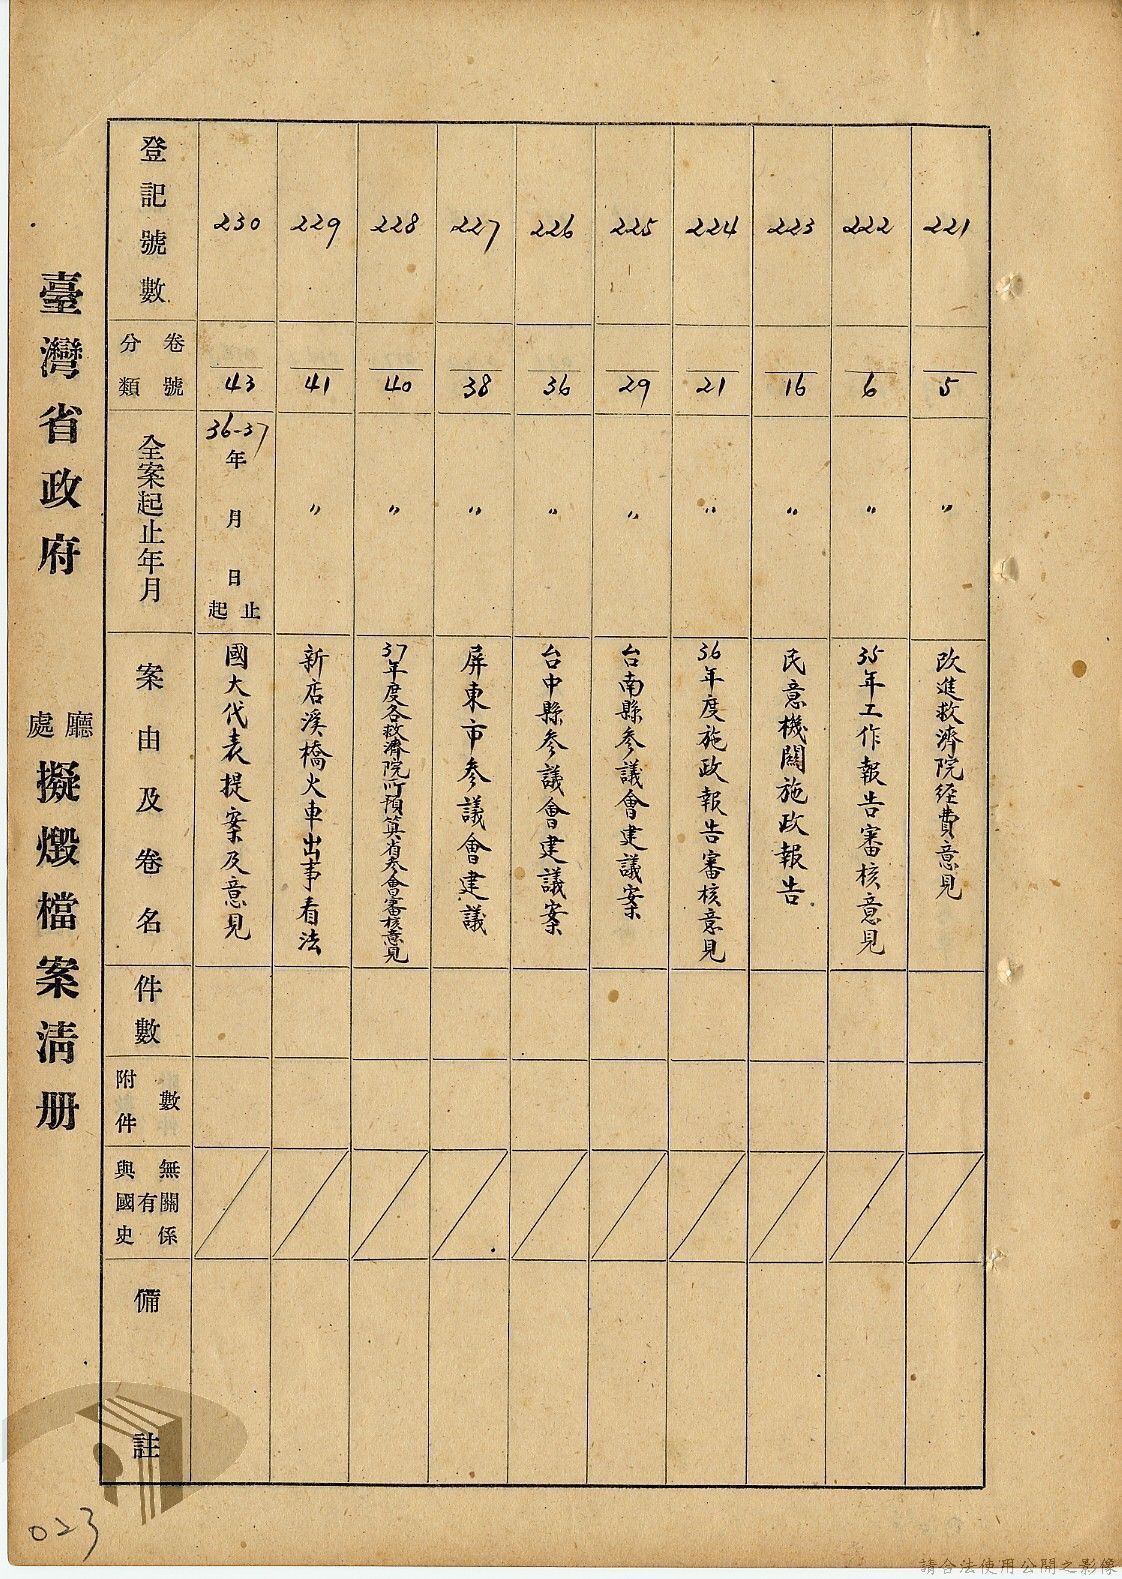 臺灣省政府 廳處 擬燬檔案清册
登記號數
分類 卷號
全案起止年月
案由及卷名
件數
附件數
與國史有無關係
備註
230
43
36-37年 月 日起止
國大代表提案及意見
229
41
〃
新店溪橋火車出事看法
228
40
〃
37年度各救濟院所預算省参會審核意見
227
38
〃
屏東市参議會建議
226
36
〃
台中縣参議會建議案
225
29
〃
台南縣参議會建議案
224
21
〃
36年度施政報告審核意見
223
16
〃
民意機關施政報告
222
6
〃
35年工作報告審核意見
221
5
〃
改進救濟院経費意見
023
請合法使用公開之影像